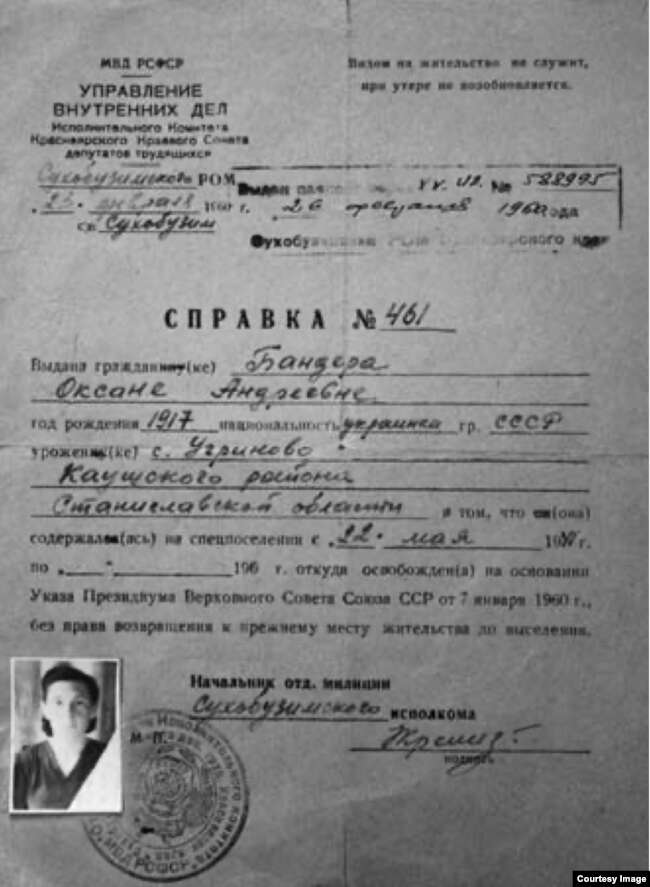 МВД РСФСР
УПРАВЛЕНИЕ
ВНУТРЕННИХ ДЕЛ
Исполнительного Комитета
Красноярского Краевого Совета
депутатов трудящихся
Сухобузимского РОМ
23 января 1960 г.
с. Сухобузим
Видом на жительство не служит,
при утере не возобновляется.
Выдан № 588995
26 февраля 1960 года
СПРАВКА № 461
Выдана гражданину(ке) Бандера
Оксане Андреевне
год рождения 1917 национальность украинка гр. СССР
урожен (ке) с. Угриново
Каушского района
Станиславской области в том, что он(она)
содержался(ась) на спецпоселении с „22" мая г.
по „ " 196 г. откуда освобожден(а) на основании
Указа Президиума Верховного Совета Союза ССР от 7 января 1960 г.,
без права возвращения к прежнему месту жительства до выселения.
Начальник отд. милиции
Сухобузимского исполкома
подпись
М. П.
Courtesy Image